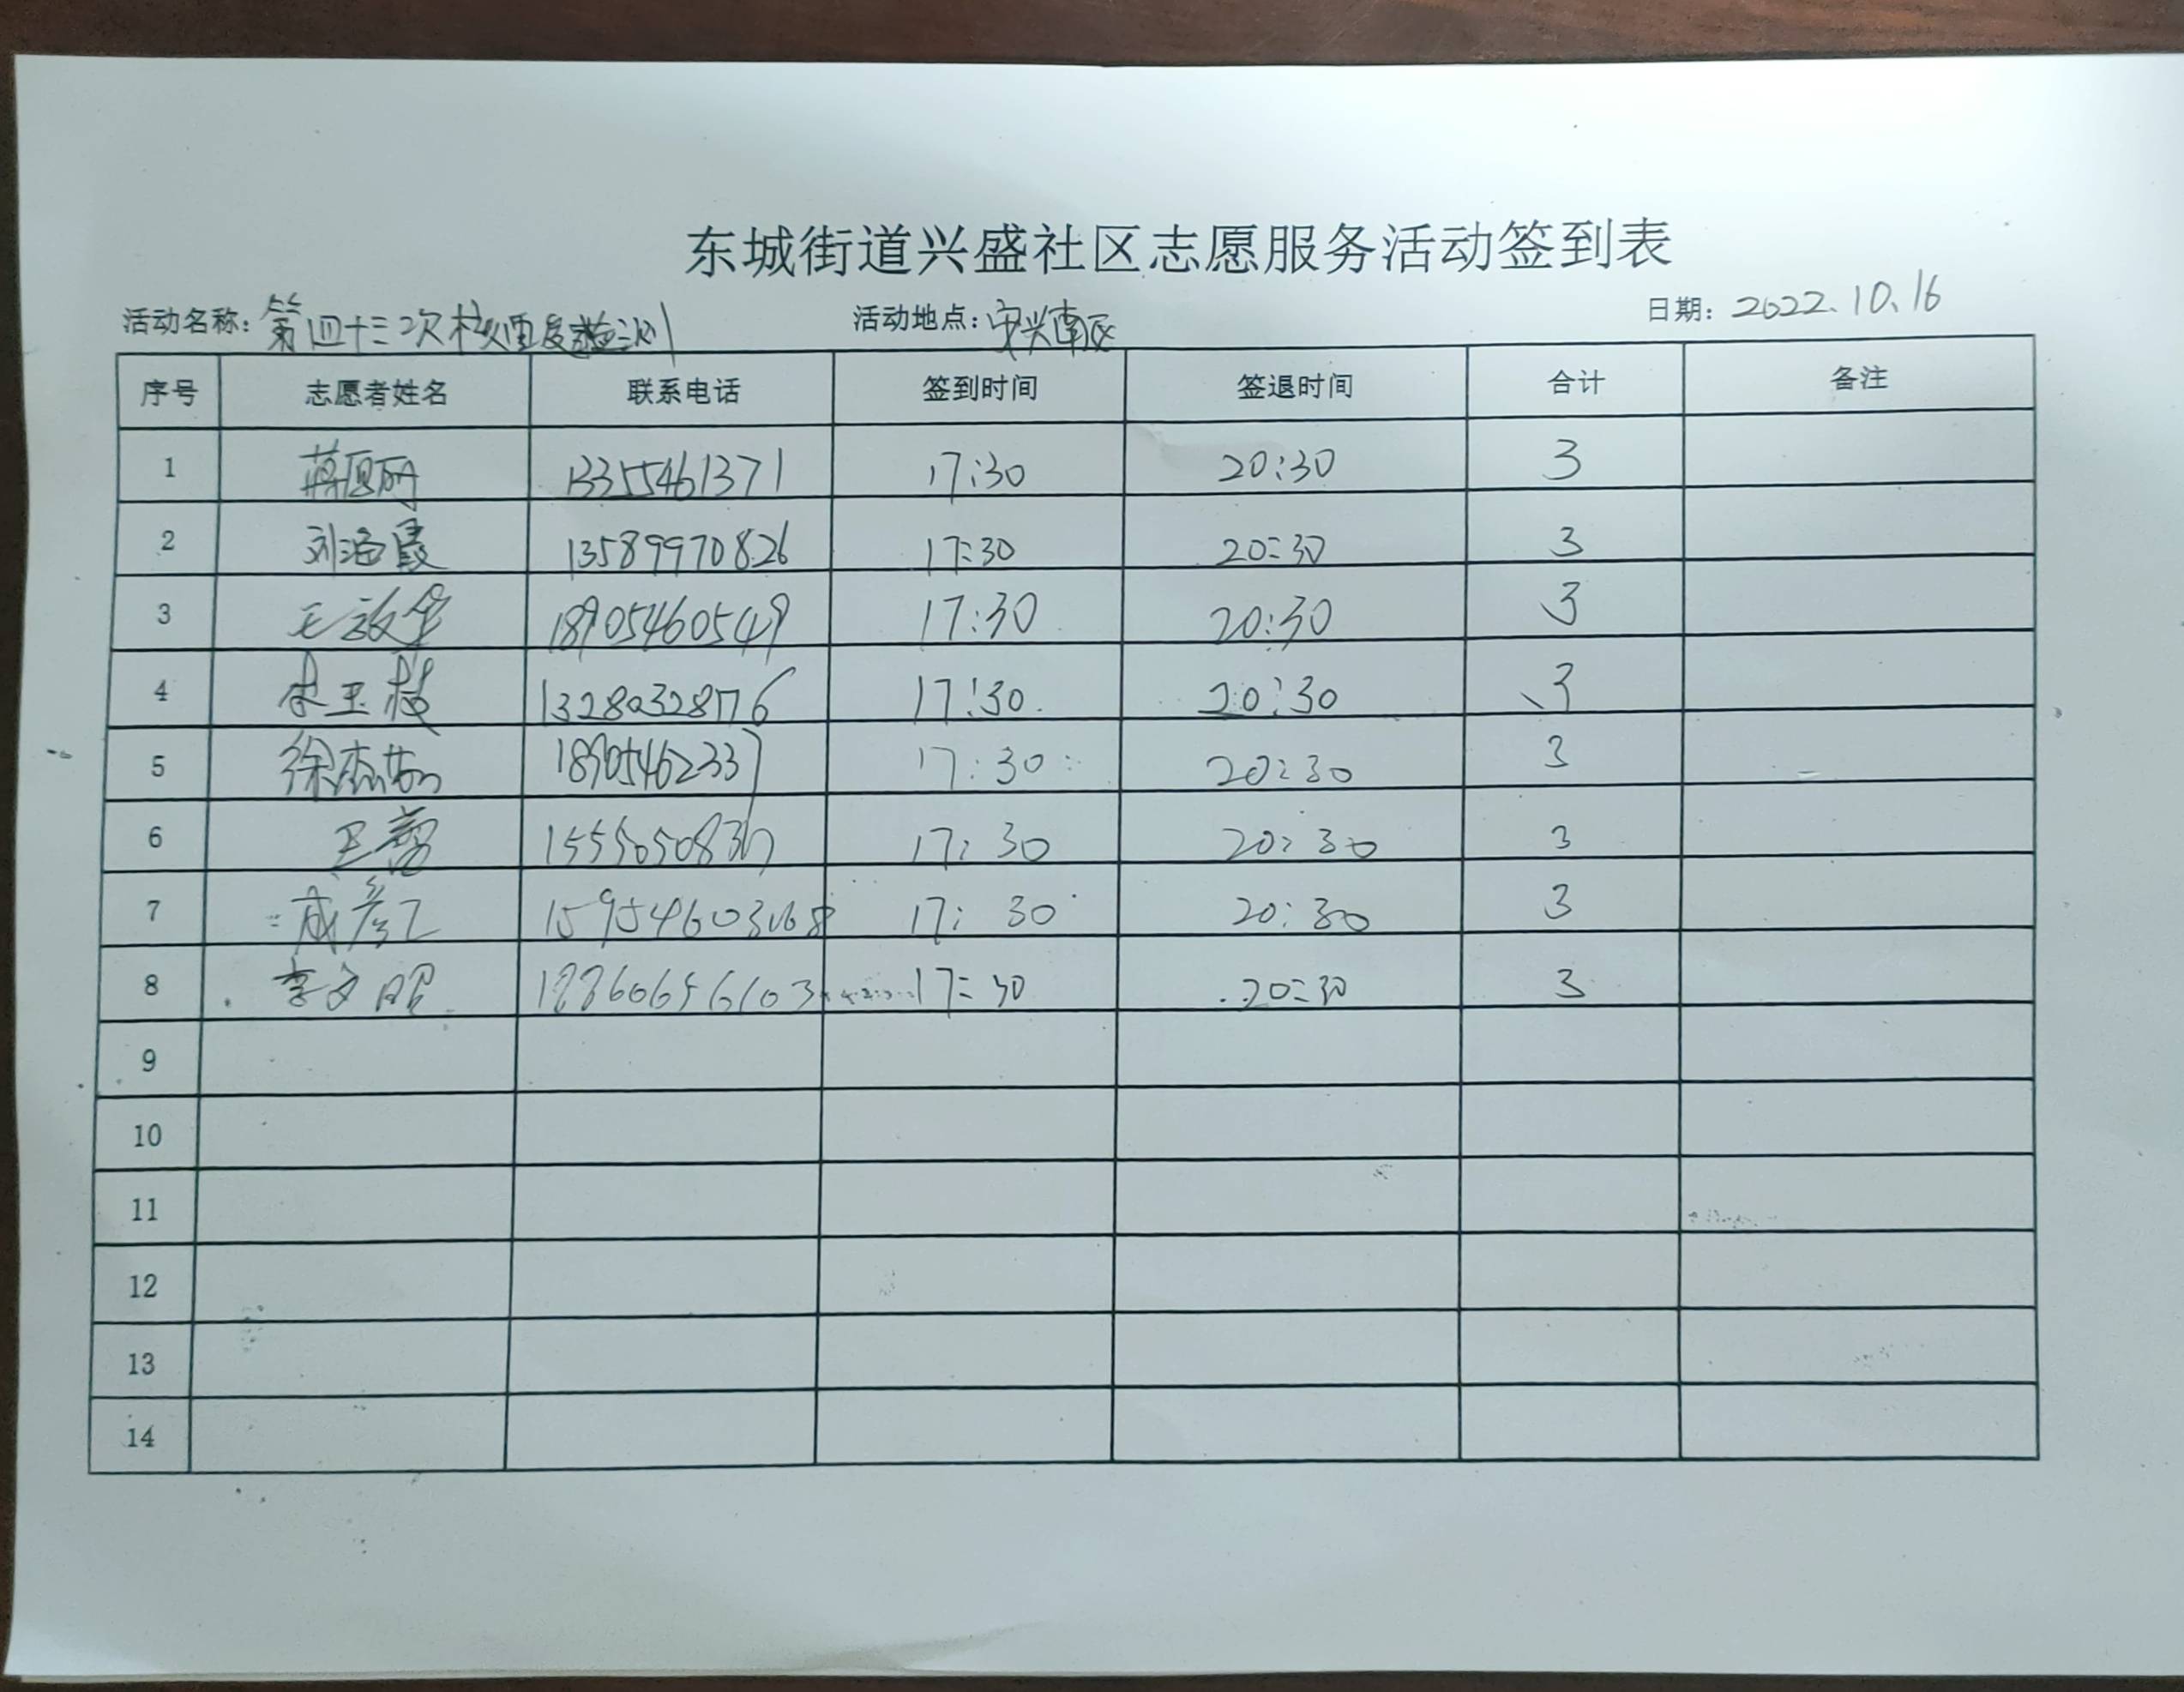 东城街道兴盛社区志愿服务活动签到表
活动名称: 第四十三次核酸检测 活动地点: 安兴南区 日期: 2022.10.16
序号 志愿者姓名 联系电话 签到时间 签退时间 合计 备注
1 17:30 20:30 3
2 刘海霞 13589970826 17:30 20:30 3
3 18905460549 17:30 20:30 3
4 17:30 20:30 3
5 18905462337 17:30 20:30 3
6 17:30 20:30 3
7 17:30 20:30 3
8 李文昭 17:30 20:30 3
9
10
11
12
13
14